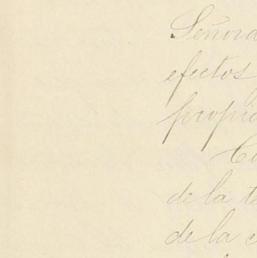 Señora
efectos
propio
de la t
de la c